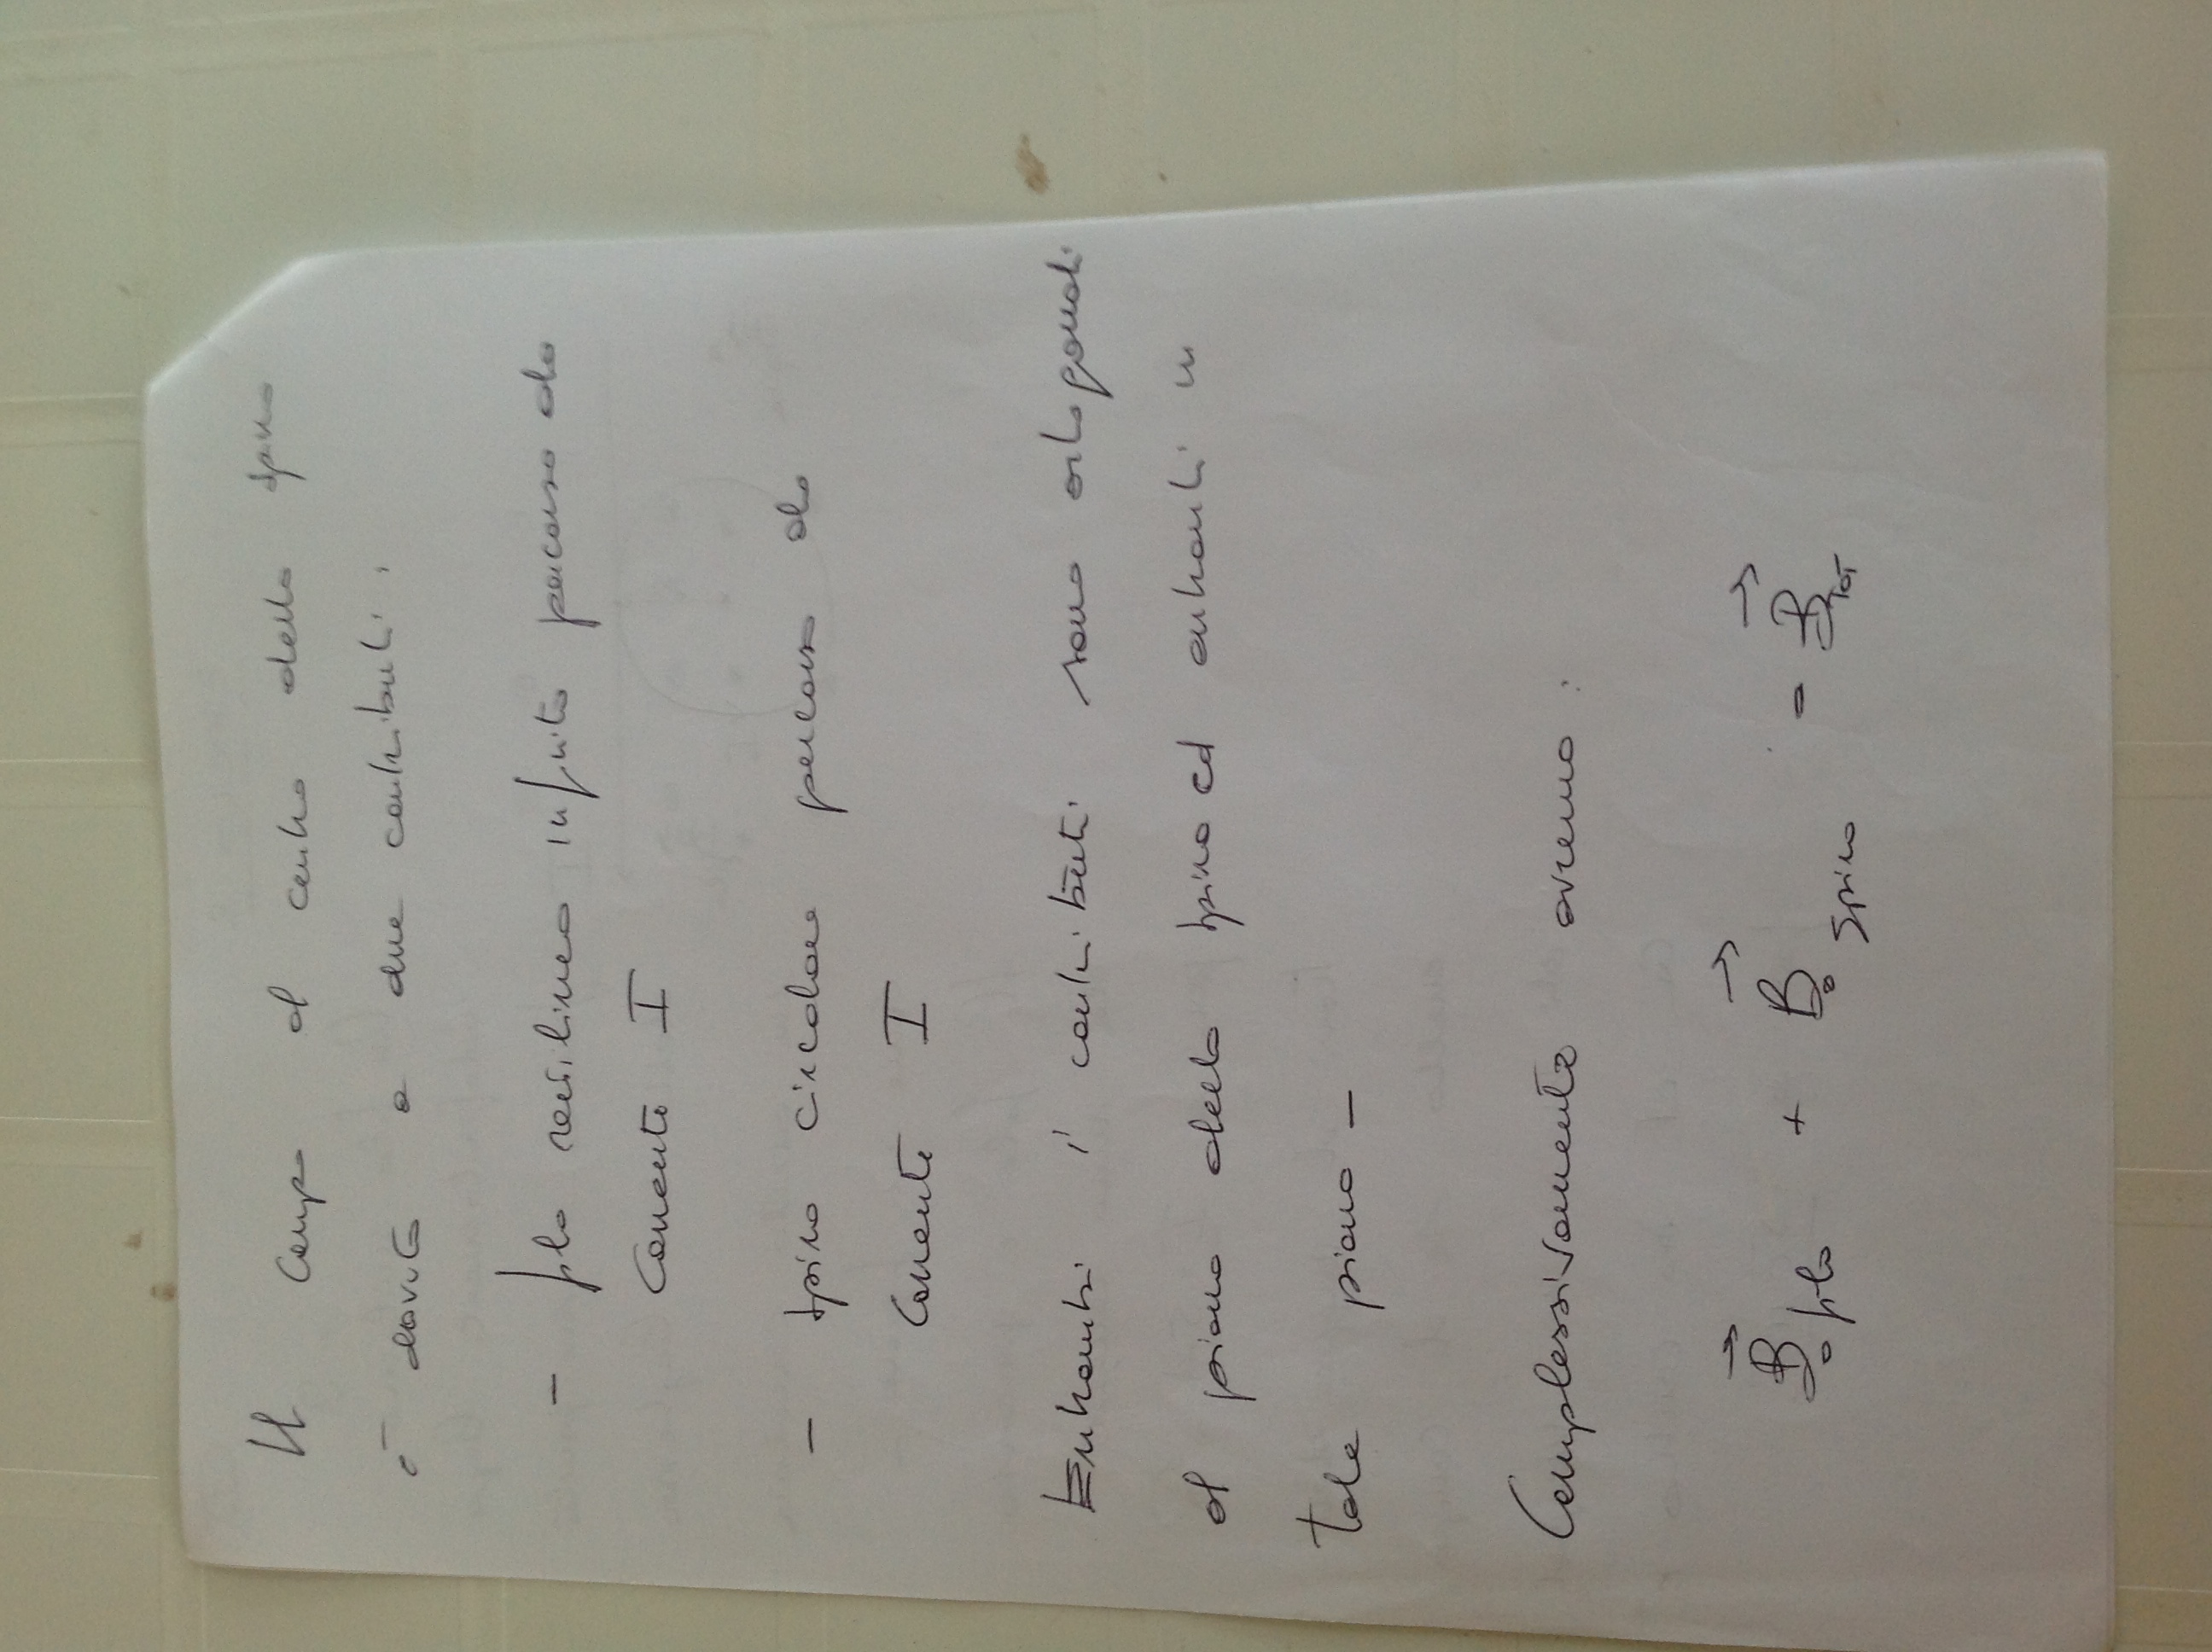 Il campo al centro della spira
è dovuto a due contributi:
- filo rettilineo infinito percorso da
corrente I
- spira circolare percorsa da
corrente I
Entrambi i contributi sono ortogonali
al piano della spira ed entranti in
tale piano -
Complessivamente avremo:
B⃗₀ filo + B⃗₀ spira = B⃗ TOT